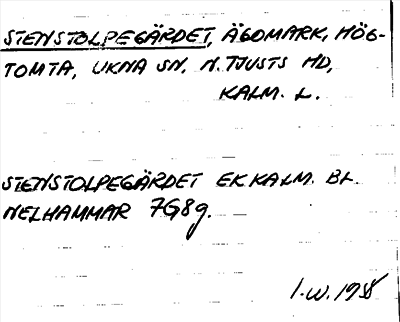 STENSTOLPEGÄRDET, ÄGOMARK, HÖG-
TOMTA, UKNA SN, N. TJUSTS HD,
KALM. L.
STENSTOLPEGÄRDET EK KALM. BL.
NELHAMMAR 7G8g.
I.W. 1958